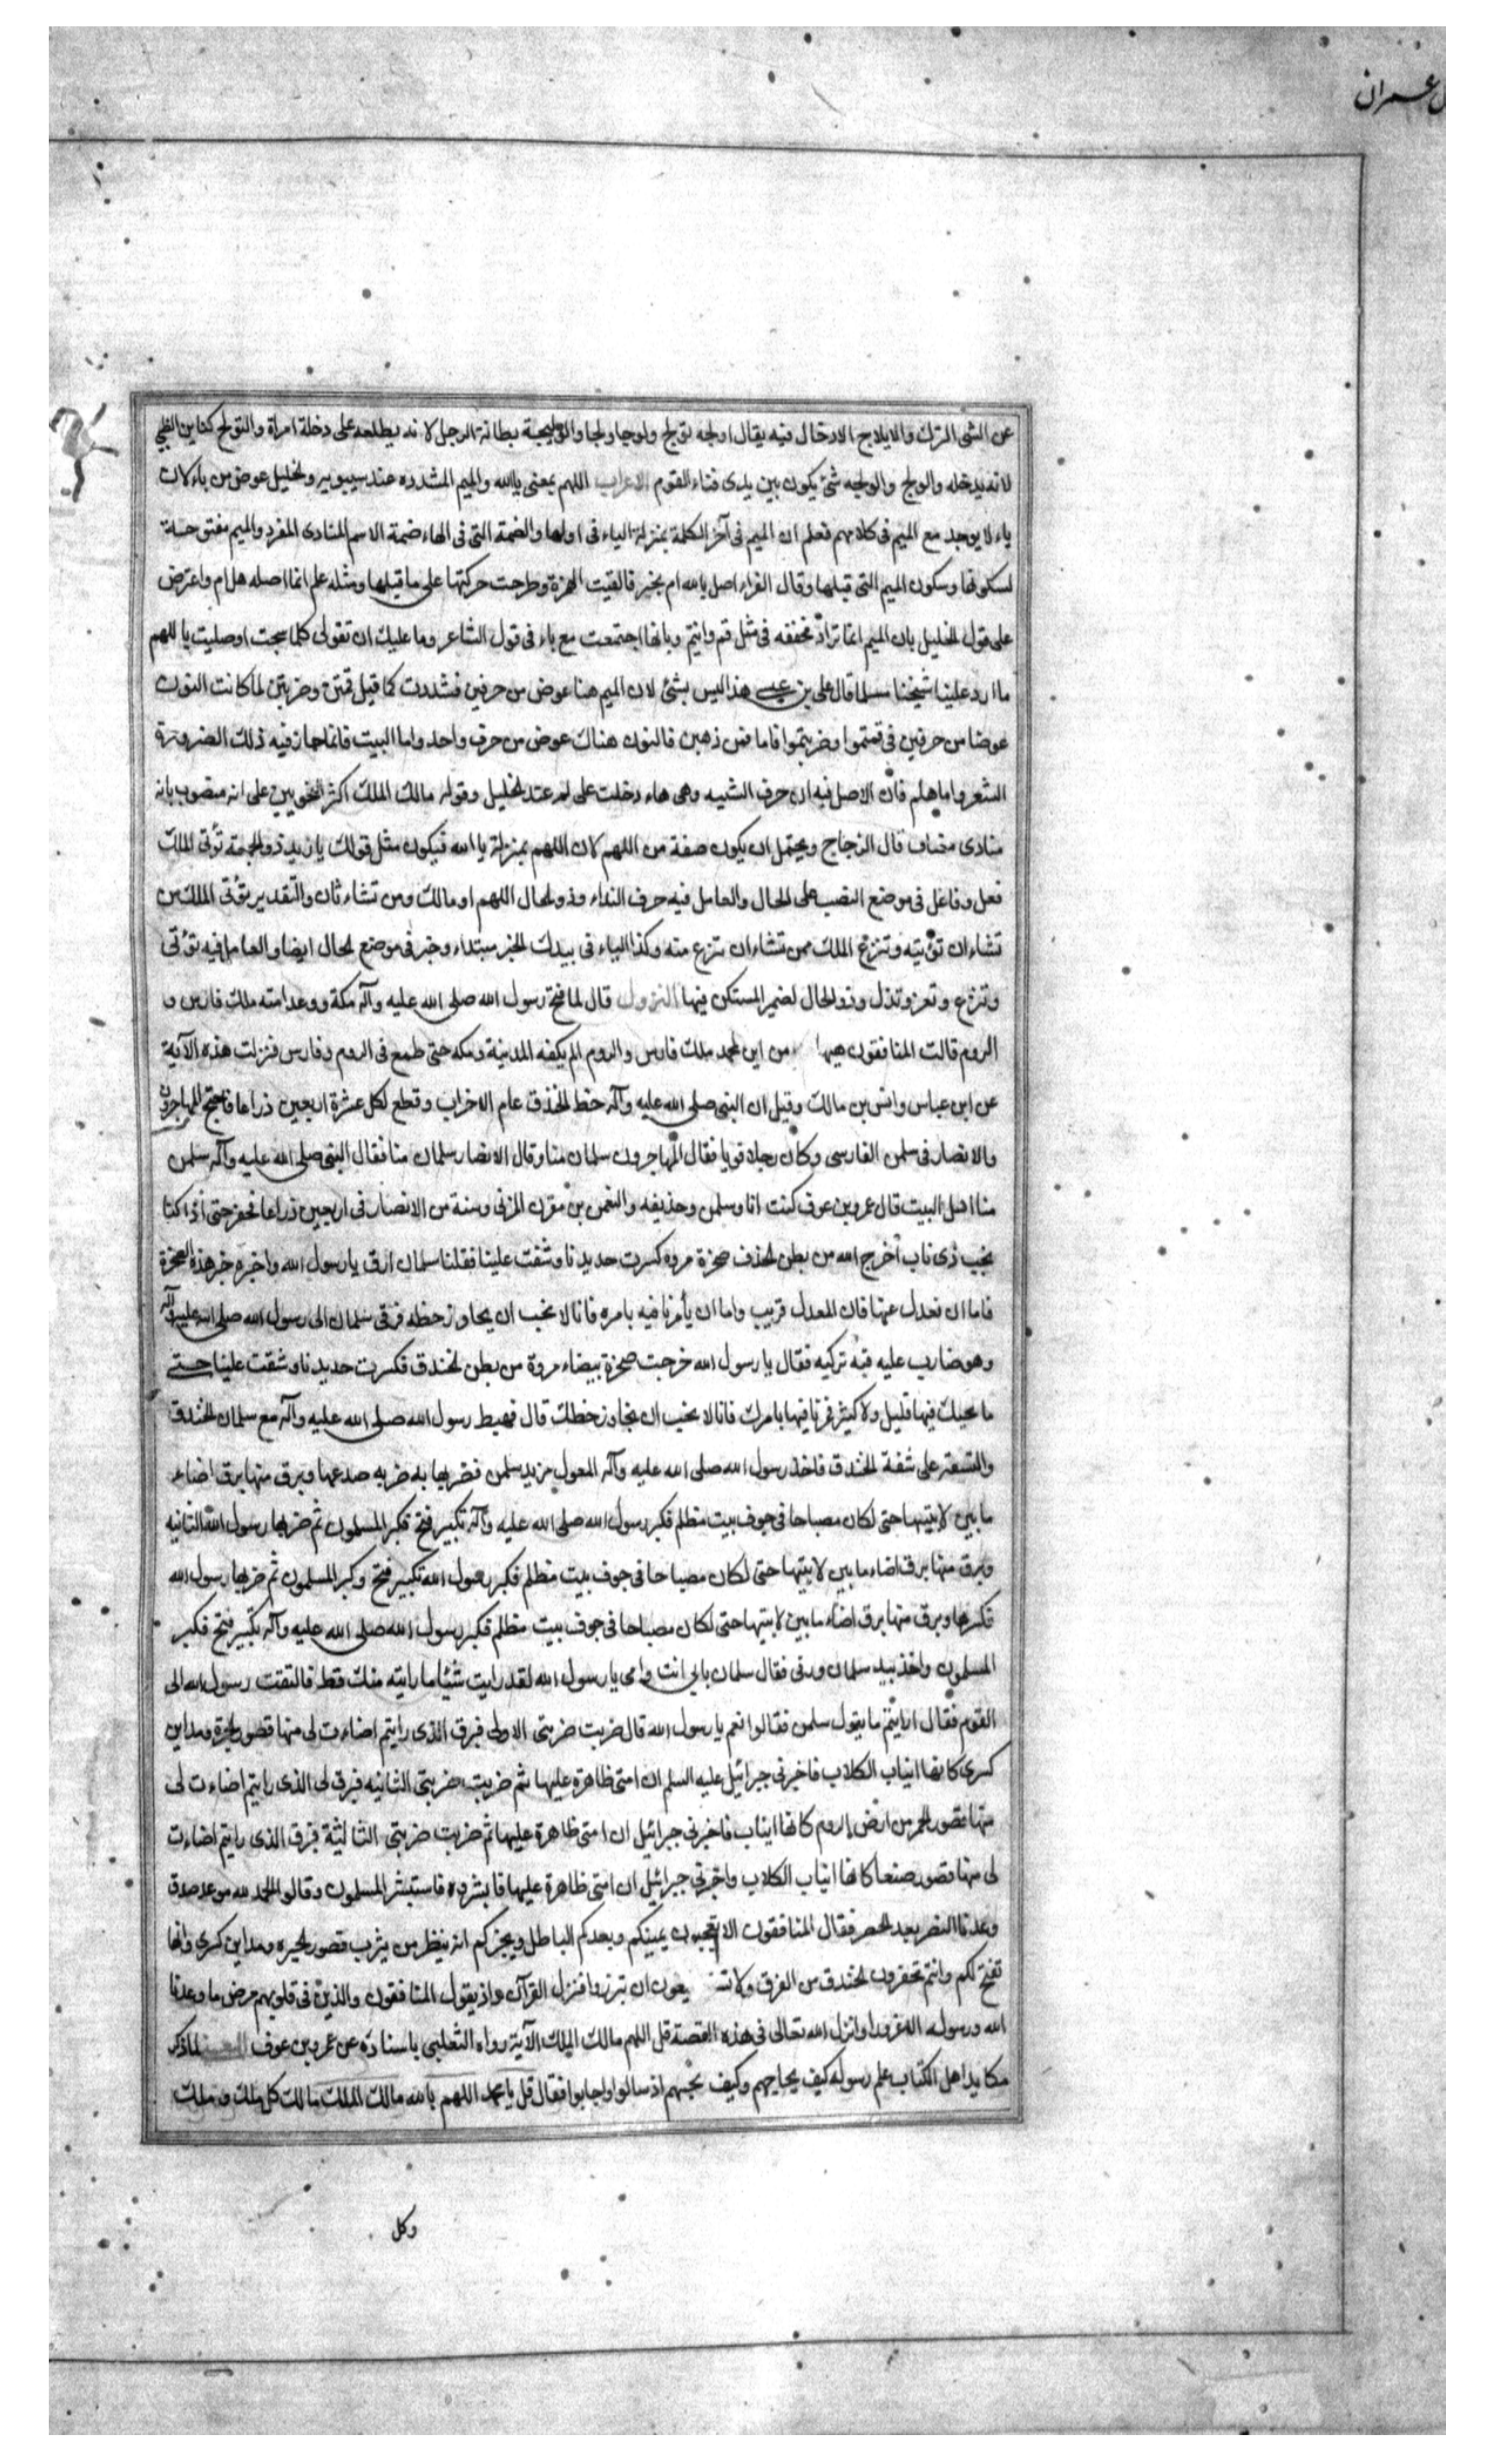 ل عمران
عن الشى الترك والايلاج الادخال فيه يقال اولجه تولج ولوجا ولجا والوليجة بطانة الرجل لانه يطلعه على دخلة امراة والتولج كناس الظبي
لانه يدخله والولج والولجه شئ يكون بين يدى فناء القوم الاعراب اللهم بمعنى ياالله والميم المشدده عند سيبويه والخليل عوض من ياء لان
ياء لا يوجد مع الميم فى كلامهم فعلم ان الميم فى آخر الكلمة بمنزلة الياء فى اولها والضمة التى فى الهاء ضمة الاسم المنادى المفرد والميم مفتوحة
لسكونها وسكون الميم التى قبلها وقال الفراء اصل يا الله ام بخير فالقيت الهمزة وطرحت حركتها على ما قبلها ومثله هلم انما اصله هل ام واعترض
على قول الخليل بان الميم انما تزاد مخففه فى مثل فم وانتم وبانها اجتمعت مع ياء فى قول الشاعر وما عليك ان تقولى كلما سبحت اوصليت يا اللهم
ما اردد علينا شيخنا مسلما قال على بن عيسى هذا ليس بشئ لان الميم هنا عوض من حرفين فشددت كما قيل قمتن وضربتن لما كانت النون
عوضا من حرفين فى قمتموا وضربتموا فاما قمن ذهبن فالنون هناك عوض من حرف واحد واما البيت فانما جاز فيه ذلك الضرورة
الشعر واما هلم فان الاصل فيه ان حرف التنبيه وهى هاء دخلت على لم عند الخليل وقوله مالك الملك اكثر النحويين على انه منصوب بانه
منادى مضاف قال الزجاج ويحتمل ان يكون صفة من اللهم لان اللهم بمنزلة يا الله فيكون مثل قولك يا زيد ذو الجمة تؤتى الملك
فعل وفاعل فى موضع النصب على الحال والعامل فيه حرف النداء وذو الحال اللهم او مالك ومن تشاء ثان والتقدير تؤتى الملك من
تشاء ان تؤتيه وتنزع الملك ممن تشاء ان تنزع منه وكذا الياء فى بيدك الخير مبتداء وخبر فى موضع الحال ايضا والعامل فيه تؤتى
وتنزع وتعز وتذل وذو الحال الضمير المستكن فيها النزول قال لما فتح رسول الله صلى الله عليه وآله مكة ووعد امته ملك فارس و
الروم قالت المنافقون هيها من اين لمحمد ملك فارس والروم الم يكفه المدينة ومكه حتى طمع فى الروم وفارس فنزلت هذه الآية
عن ابن عباس وانس بن مالك وقيل ان النبى صلى الله عليه وآله خط الخندق عام الاحزاب وقطع لكل عشرة اربعين ذراعا فاحتج المهاجرون
والانصار فى سلمن الفارسى وكان رجلا قويا فقال المهاجرون سلمان منا وقال الانصار سلمان منا فقال النبى صلى الله عليه وآله سلمن
منا اهل البيت قال عمرو بن عوف كنت انا وسلمن وحذيفه والنعمن بن مقرن المزنى وستة من الانصار فى اربعين ذراعا نحفر حتى اذا كنا
بجب ذى ناب اخرج الله من بطن الخندف صخرة مروه كسرت حديدنا وشقت علينا فقلنا سلمان ارق يا رسول الله واخبره خبر هذه الصخرة
فاما ان نعدل عنها فان المعدل قريب واما ان يأمرنا فيه بامره فانا لا نحب ان نحاوز خطه فرقى سلمان الى رسول الله صلى الله عليه وآله
وهو ضارب عليه قبة تركيه فقال يا رسول الله خرجت صخرة بيضاء مروة من بطن الخندق فكسرت حديدنا وشقت علينا حتى
ما يحيك فيها قليل ولا كثير فمرنا فيها بامرك فانا لا نحب ان نتجاوز خطك قال فهبط رسول الله صلى الله عليه وآله مع سلمان الخندق
والتسعة على شفة الخندق فاخذ رسول الله صلى الله عليه وآله المعول من يد سلمن فضربها به ضربه صدعها وبرق منها برق اضاء
ما بين لابتيها حتى لكان مصباحا فى جوف بيت مظلم فكبر رسول الله صلى الله عليه وآله تكبير فتح فكبر المسلمون ثم ضربها رسول الله الثانيه
وبرق منها برق اضاء ما بين لابتيها حتى لكان مصباحا فى جوف بيت مظلم فكبر رسول الله تكبير فتح وكبر المسلمون ثم ضربها رسول الله
فكسرها وبرق منها برق اضاء ما بين لابتيها حتى لكان مصباحا فى جوف بيت مظلم فكبر رسول الله صلى الله عليه وآله تكبير فتح فكبر
المسلمون واخذ بيد سلمان ورقى فقال سلمان بابى انت وامى يا رسول الله لقد رايت شيئا ما رايته منك قط فالتفت رسول الله الى
القوم فقال ارايتم ما يقول سلمن فقالوا نعم يا رسول الله قال ضربت ضربتى الاولى فبرق الذى رايتم اضاءت لى منها قصور الحيرة ومداين
كسرى كانها انياب الكلاب فاخبرنى جبرائيل عليه السلم ان امتى ظاهرة عليها ثم ضربت ضربتى الثانيه فبرق لى الذى رايتم اضاءت لى
منها قصور الحمر من ارض الروم كانها انياب فاخبرنى جبرائيل ان امتى ظاهرة عليها ثم ضربت ضربتى الثالثة فبرق الذى رايتم اضاءت
لى منها قصور صنعا كانها انياب الكلاب واخبرنى جبرائيل ان امتى ظاهرة عليها فابشروا فاستبشر المسلمون وقالوا الحمد لله موعد صدق
وعدنا النصر بعد الحصر فقال المنافقون الا تعجبون يمنيكم ويعدكم الباطل ويخبركم انه ينظر من يثرب قصور الحيره ومداين كسرى وانها
تفتح لكم وانتم تحفرون الخندق من الفرق ولا تستطيعون ان تبرزوا فنزل القرآن واذ يقول المنافقون والذين فى قلوبهم مرض ما وعدنا
الله ورسوله الا غرورا وانزل الله تعالى فى هذه القصة قل اللهم مالك الملك الآية رواه الثعلبى باسناده عن عمرو بن عوف لما ذكر
مكايد اهل الكتاب علم رسوله كيف يحاجهم وكيف يجبهم اذ سالوا واجابوا فقال قل يا محمد اللهم يا الله مالك الملك مالك كل ملك وملك
وكل